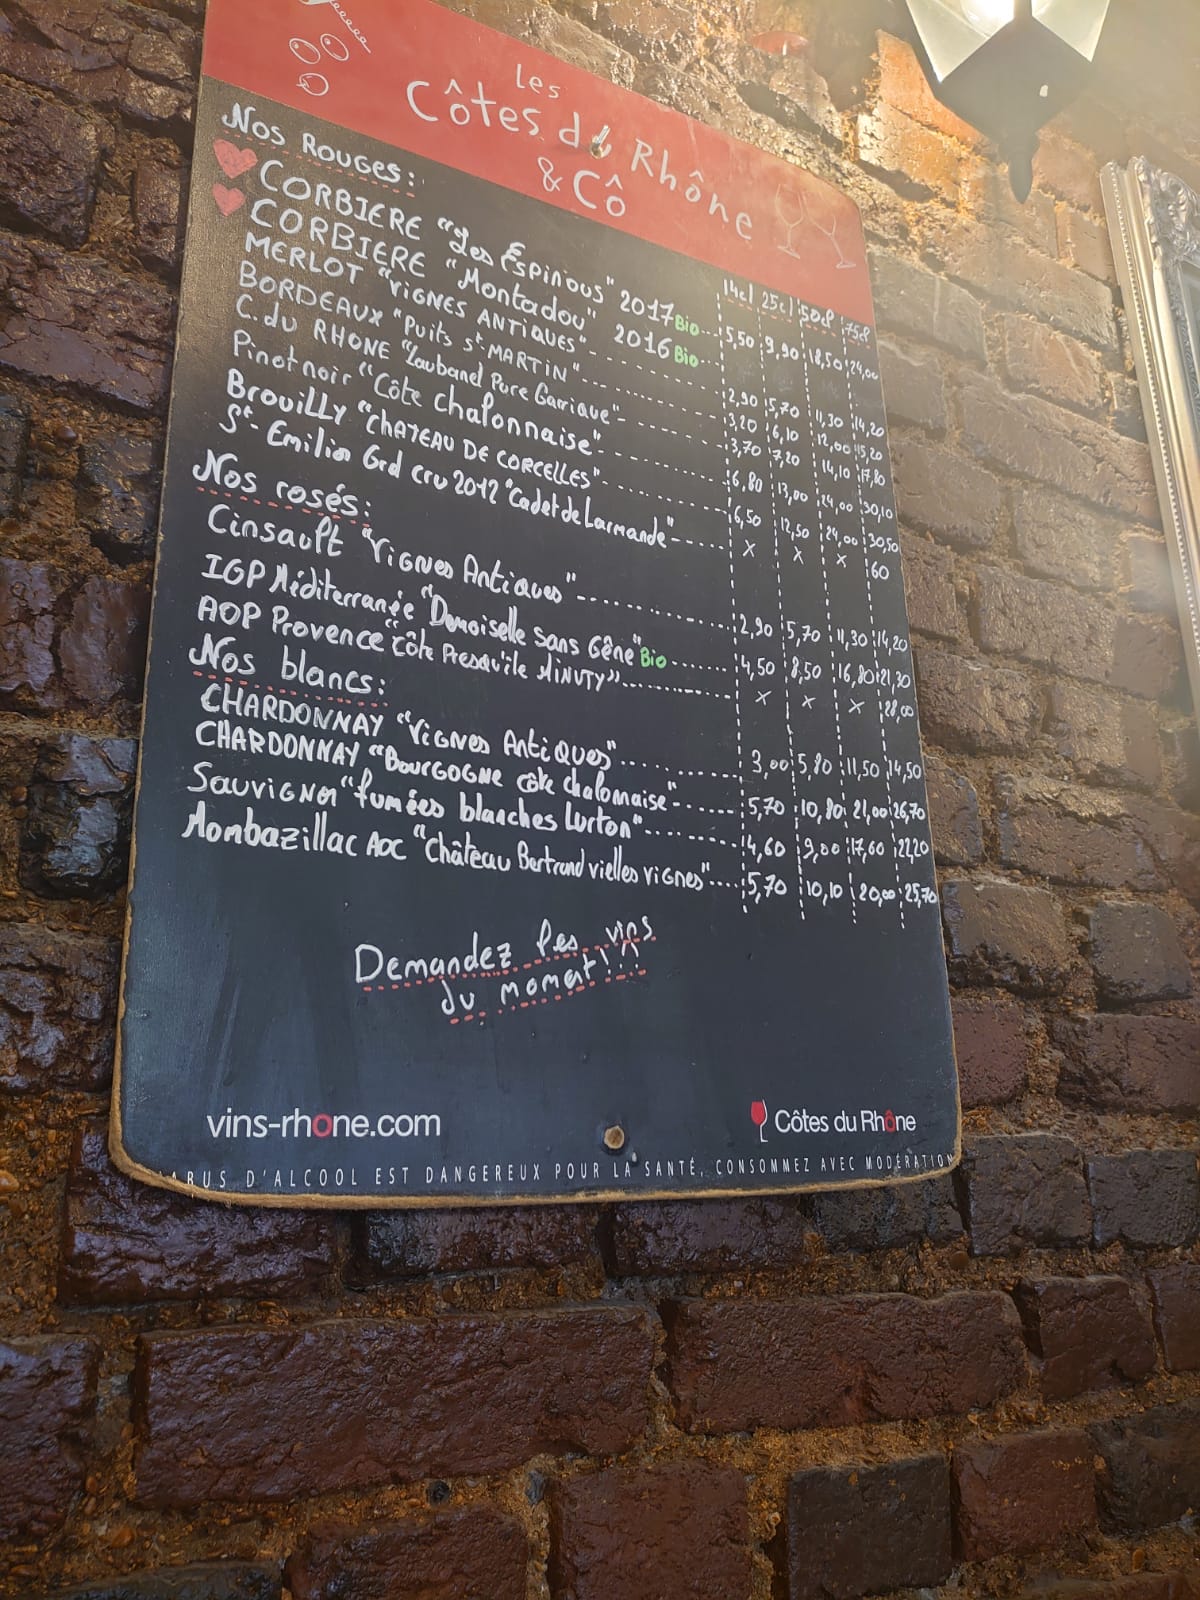 Les
Côtes du Rhône
& Cô
14cl 25cl 50cl 75cl
Nos Rouges:
CORBIERE "Les Espinous" 2017 Bio... 5,50 9,90 18,50 24,00
CORBIERE "Montadou" 2016 Bio...
MERLOT "VIGNES ANTIQUES"........ 2,90 5,70 11,30 14,20
BORDEAUX "Puits St. MARTIN"........ 3,20 6,10 12,00 15,20
C.du RHONE "Laubanel Pure Garrigue"........ 3,70 7,20 14,10 17,80
Pinot noir "Côte chalonnaise"........ 6,80 13,00 24,00 30,10
Brouilly "CHATEAU DE CORCELLES"........ 6,50 12,50 24,00 30,50
St- Emilion Grd cru 2012 "Cadet de Larmande"...... x x x 60
Nos rosés:
Cinsault "Vignes Antiques"........ 2,90 5,70 11,30 14,20
IGP Méditerranée "Demoiselle sans Gêne" Bio...... 4,50 8,50 16,80 21,30
AOP Provence "Côte Presqu'île MINUTY"........ x x x 28,00
Nos blancs:
CHARDONNAY "Vignes Antiques"........ 3,00 5,80 11,50 14,50
CHARDONNAY "BOURGOGNE côte chalonnaise"...... 5,70 10,80 21,00 26,70
Sauvignon "fumées blanches Lurton"........ 4,60 9,00 17,60 22,20
Monbazillac AOC "Château Bertrand vielles vignes".... 5,70 10,10 20,00 25,70
Demandez les vins
du moment!!!
vins-rhone.com
Côtes du Rhône
ABUS D'ALCOOL EST DANGEREUX POUR LA SANTÉ, CONSOMMEZ AVEC MODÉRATION